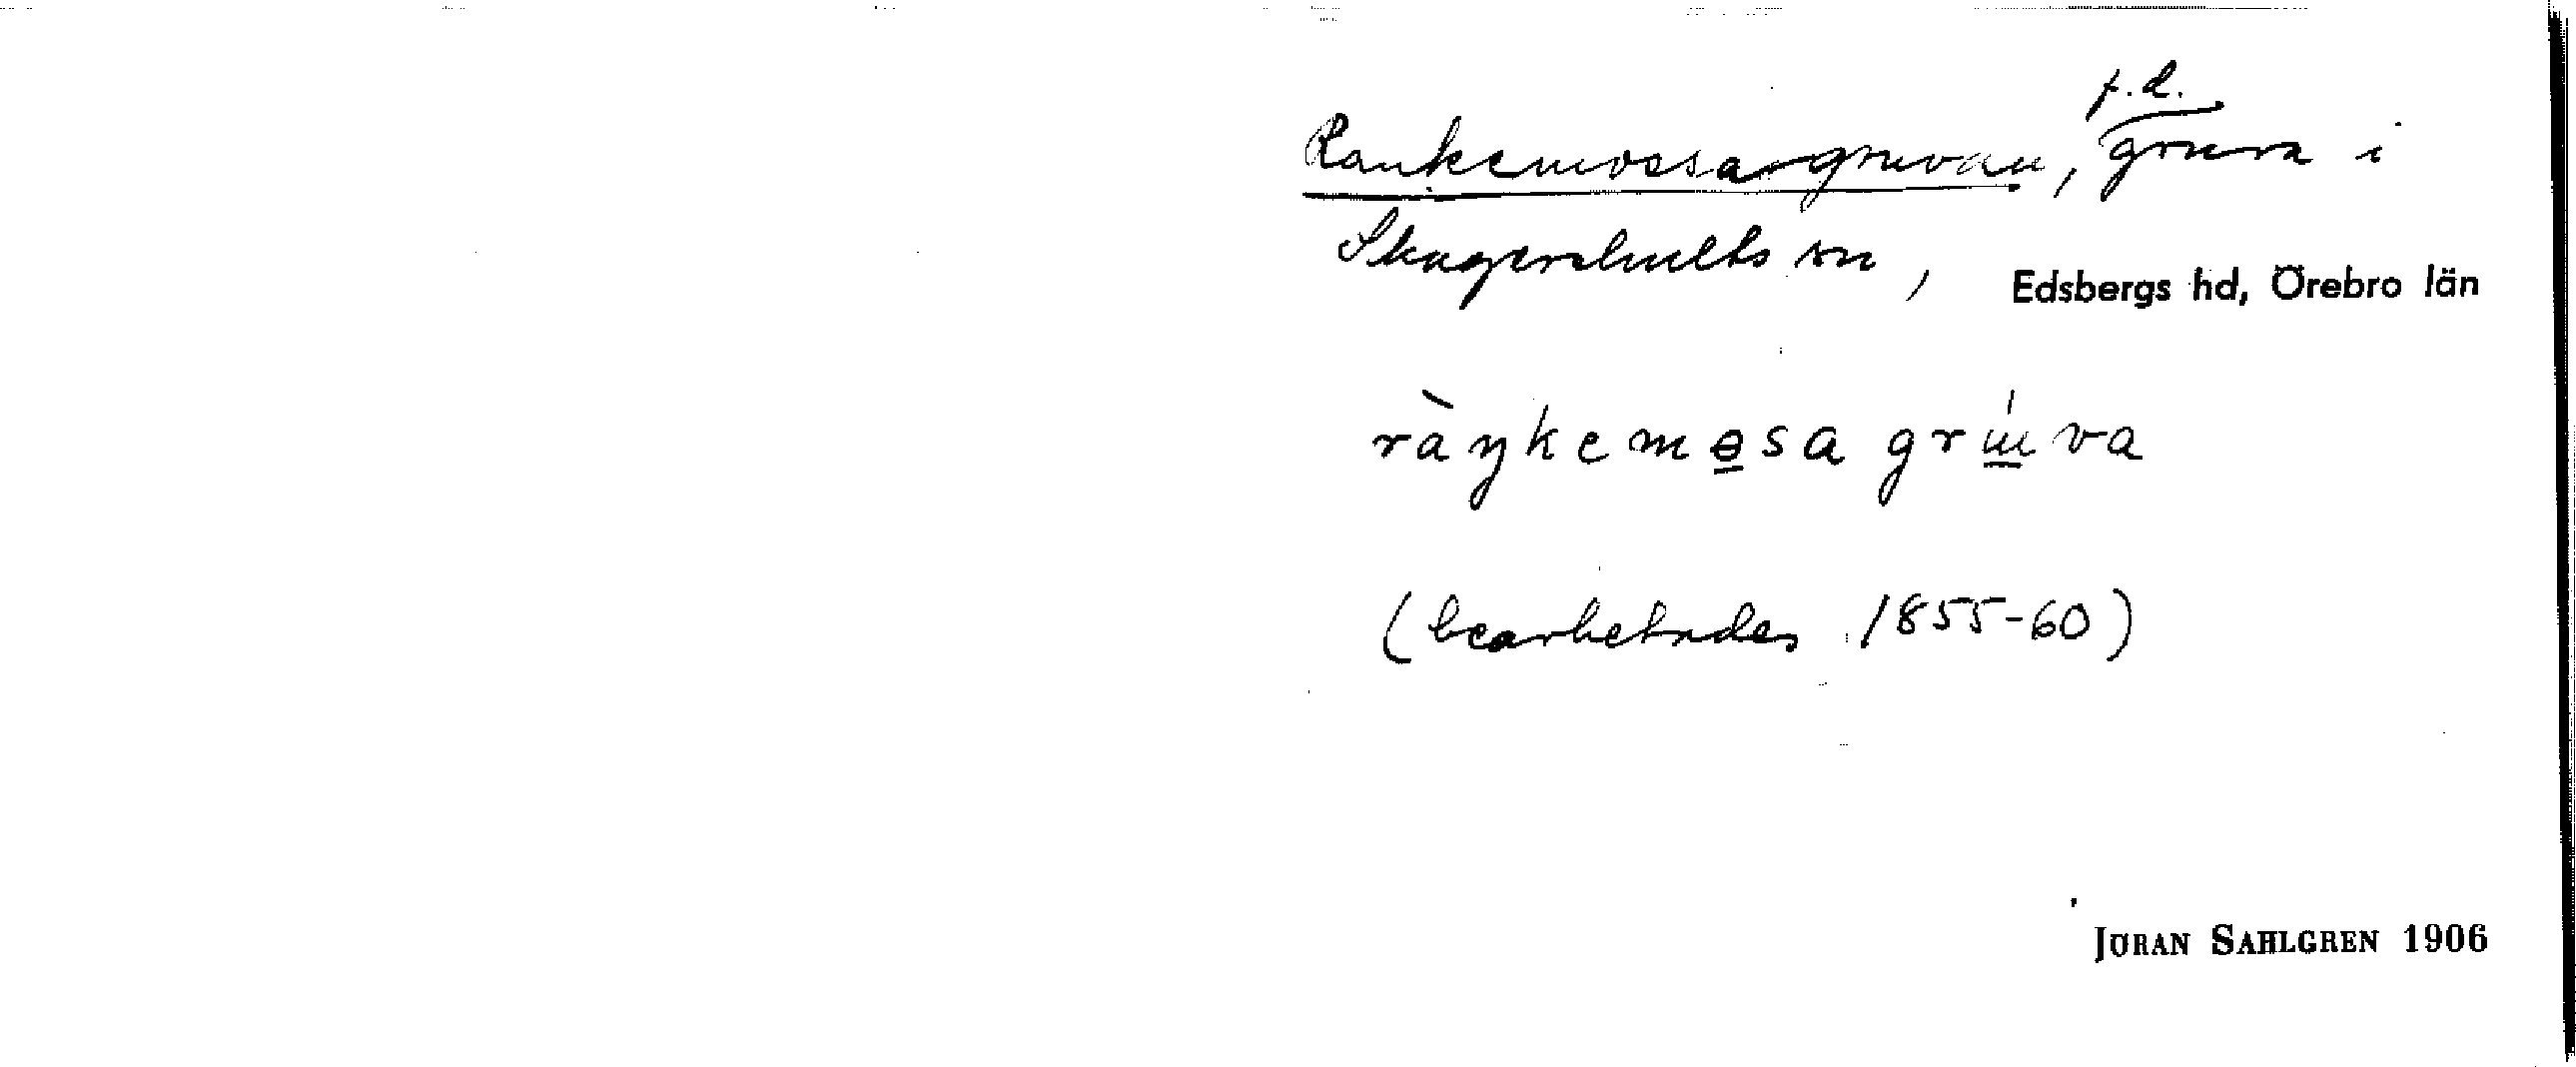 f.d.
Rankemossagruvan, gruva i
Skagershults sn, Edsbergs hd, Örebro län
ràŋkemɵsa grúva
(bearbetades 1855-60)
JÖRAN SAHLGREN 1906